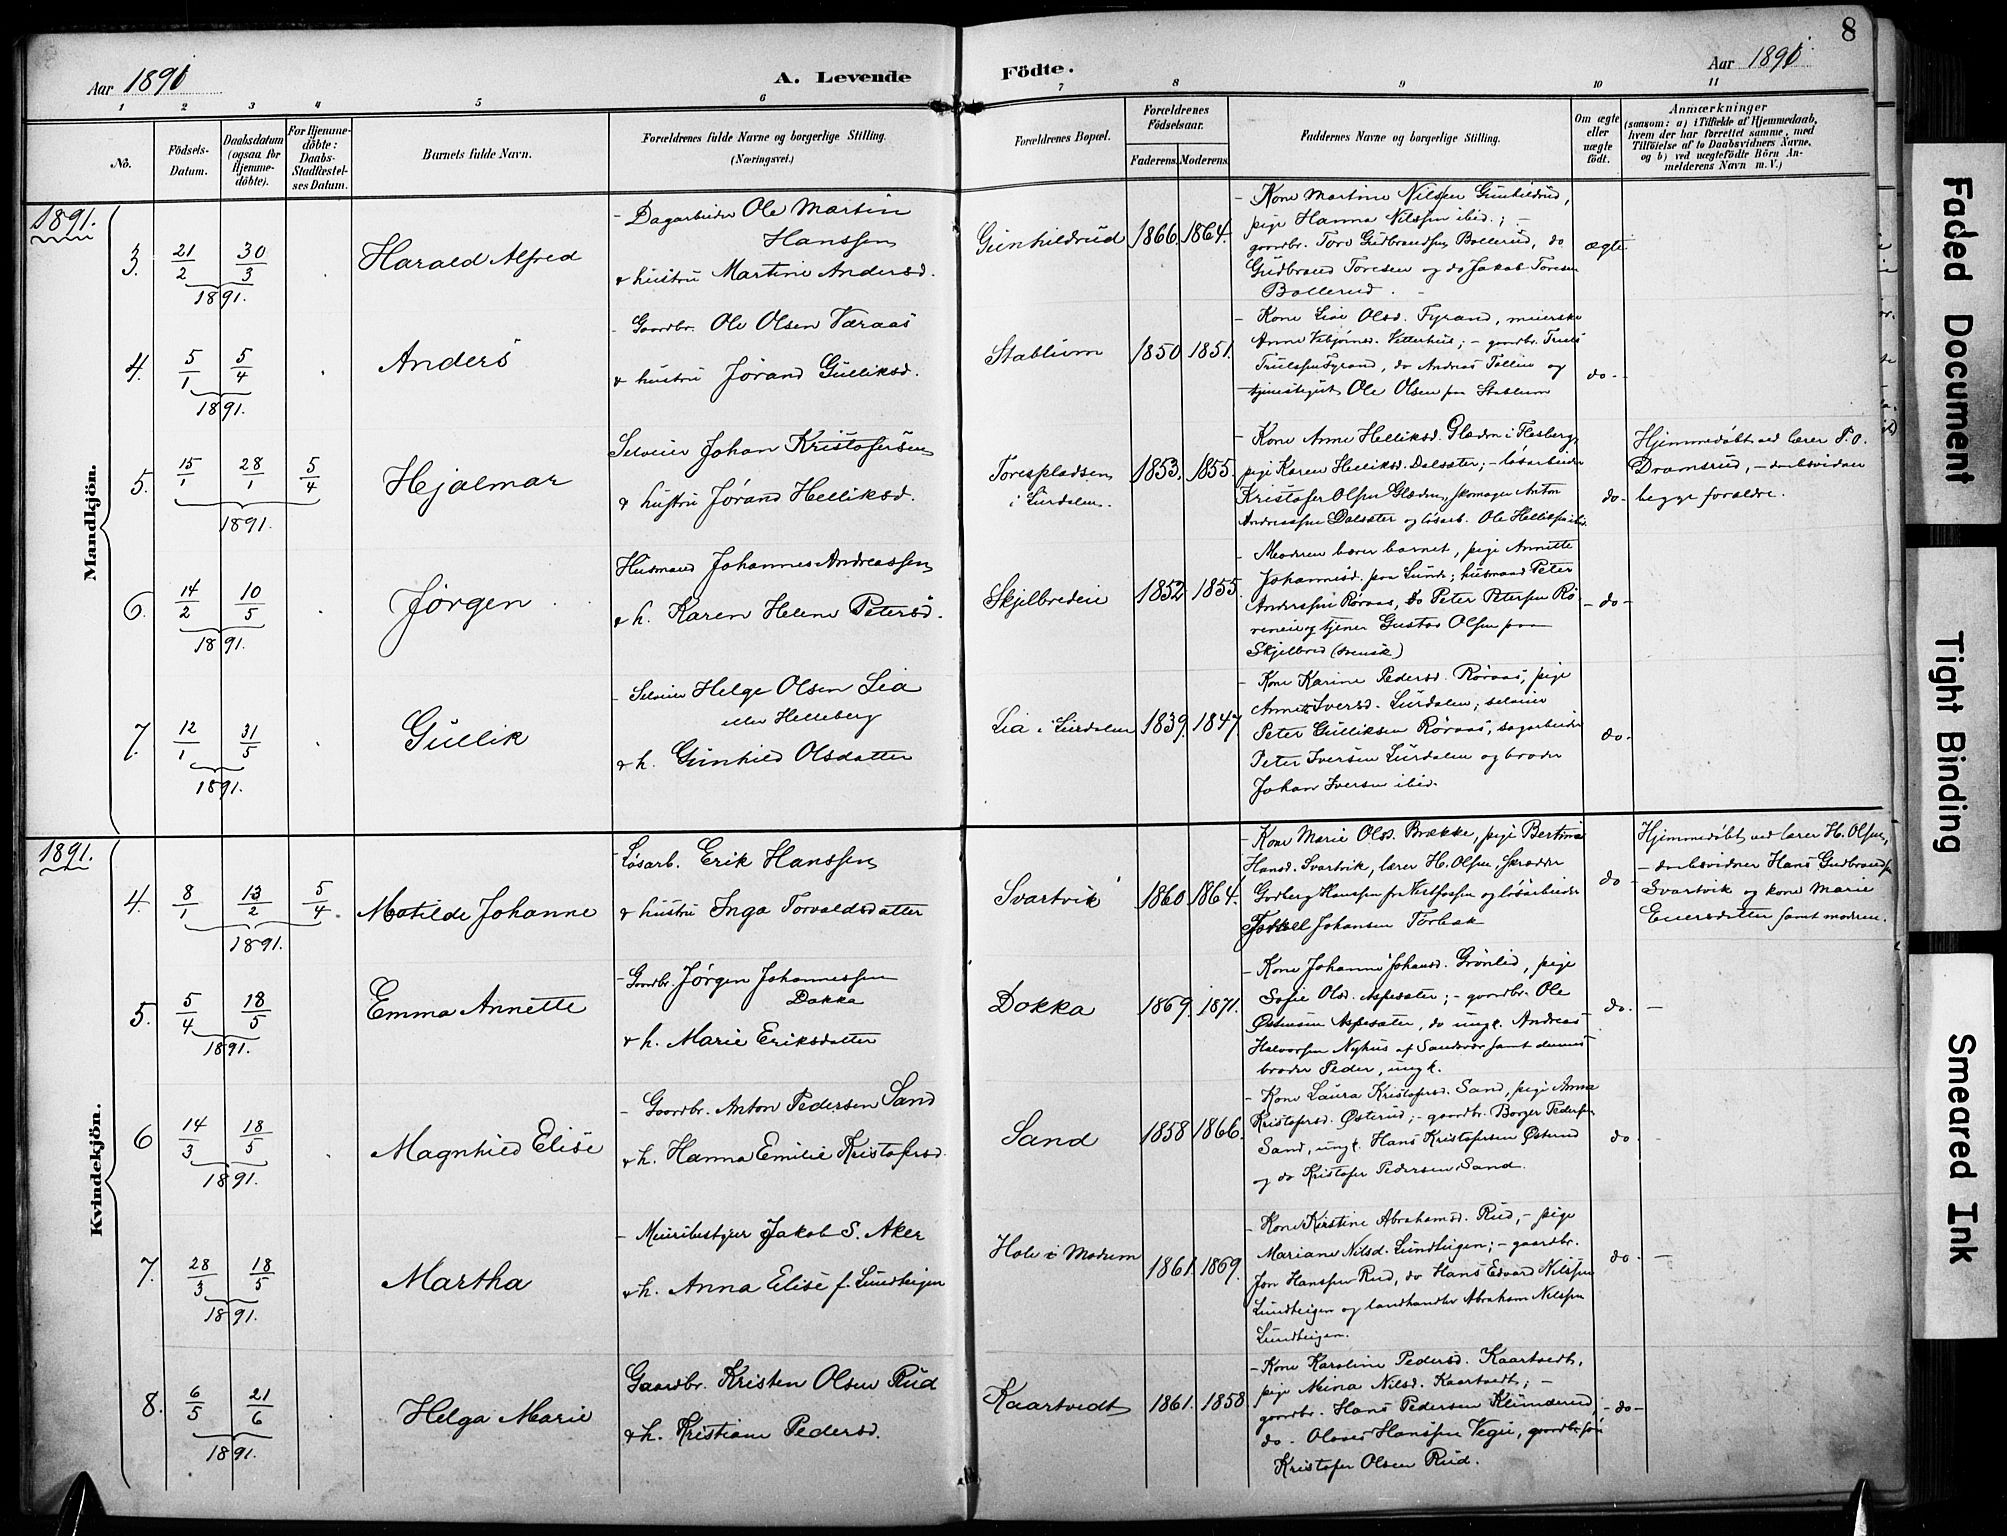 8
Aar 1891
A. Levende Födte.
Aar 1891
1 2 3 4 5 6 7 8 9 10 11
No.
Födsels-Datum.
Daabsdatum (ogsaa for Hjemme-döbte).
For Hjemme-döbte: Daabs-Stadfæstel-ses Datum.
Barnets fulde Navn.
Forældrenes fulde Navne og borgerlige Stilling.
(Næringsvei.)
Forældrenes Bopæl.
Forældrenes Födselsaar.
Faderens. Moderens.
Faddernes Navne og borgerlige Stilling.
Om ægte eller uægte födt.
Anmærkninger
(saasom: a) i Tilfælde af Hjemmedaab,
hvem der har forrettet samme, med
Tilföielse af to Daabsvidners Navne,
og b) ved uægtefödte Börn An-
melderens Navn m. V.)
Mandkjön.
1891.
3. 21/2 30/3 1891.
Harald Alfred
- Dagarbeider Ole Martin
Hanssen
& hustru Martine Andersd.
Gunhildrud 1866. 1864.
- Kone Martine Nilsen Gunhildrud,
pige Hanna Nilssen ibid.; -
gaardbr. Tore Gudbrandsen Bollerud, do
Gudbrand Toresen og do Jakob Toresen
Bollerud.
ægte
4. 5/1 5/4 1891.
Anders
- Gaardbr. Ole Olsen Væraas
& hustru Jørand Gulliksd.
Stablum 1850. 1851.
- Kone Live Olsd. Fyrand, meierske
Anne Vebjørnsd. Vetterhus; - gaardbr. Truls
Trulssen Fyrand, do Andreas Tollin og
tjenestegut Ole Olsen paa Stablum
do -
5. 15/1 28/1 5/4 1891.
Hjalmar
Selveier Johan Kristofersen
& hustru Jørand Helliksd.
Torespladsen
i Lurdalen. 1853. 1855.
- Kone Anne Helliksd. Glæden i Flesberg,
pige Karen Helliksd. Dalsæter; - løsarbeider
Kristofer Olsen Glæden, skomager Anton
Andreassen Dalsæter og løsarb. Ole Hellikssen ibid.
do -
Hjemmedøbt ved lærer P. O.
Dramsrud, - daabsvidner
begge forældre.
6. 14/2 10/5 1891.
Jørgen
Husmand Johannes Andreassen
& h. Karen Helene Petersd.
Skjelbredeie 1852 1855.
- Moderen bærer barnet, pige Annette
Johannesd. paa Lunde; husmand Peter
Anderssen Røraas, do Peter Petersen Rø-
reneie og tjener Gustav Olsen paa
Skjelbred (svensk)
- do -
7. 12/1 31/5 1891.
Gullik
- Selveier Helge Olsen Lia
eller Helleberg
& h. Gunhild Olsdatter
Lia i Lurdalen 1839. 1847.
- Kone Karine Pedersd. Røraas, pige
Anne Iversd. Lurdalen; selveier
Peter Gulliksen Røraas, sagarbeider
Peter Iversen Lurdalen og broder
Johan Iversen ibid.
do -
Kvindekjön.
1891.
4. 8/1 13/2 5/4 1891.
Matilde Johanne
- Løsarb. Erik Hanssen
& hustru Inga Torvaldsdatter
Svartvik 1860. 1864.
- Kone Marie Olsd. Brække, pige Bertine
Hansd. Svartvik, lærer H. Olsen, skrædder
Godberg Hansen fra Vestfossen og løsarbeider
Johansen Torbak
do -
Hjemmedøbt ved lærer H. Olsen,
- daabsvidner Hans Gudbrands.
Svartvik og kone Marie
Einersdatter samt moderen.
5. 5/4 18/5 1891.
Emma Annette
- Gaardbr. Jørgen Johannessen
Dokka
& h. Marie Eriksdatter
Dokka 1869. 1871.
- Kone Johanne Johansd. Grønlid, pige
Sofie Olsd. Aspesæter; - gaardbr. Ole
Østensen Aspesæter, do ungk. Andreas
Halvorsen Nyhus af Sandsvær samt dennes
broder Peder, ungk.
do. -
6 14/3 18/5 1891.
Magnhild Elise
- Gaardbr. Anton Pedersen Sand
& h. Hanna Emilie Kristofersd.
Sand 1858 1866.
- Kone Laura Kristofersd. Sand, pige Anna
Kristofersd. Østerud; - gaardbr. Borger Pedersen
Sand, ungk. Hans Kristofersen Østerud
og do Kristofer Pedersen Sand.
do -
7. 28/3 18/5 1891.
Martha
- Meieribestyrer Jakob S. Aker
& h. Anna Elise f. Lundteigen
Hole i Modum 1861. 1869.
- Kone Kirstine Abrahamsd. Rud, - pige
Mariane Nilsd. Lundteigen; - gaardbr.
Jon Hanssen Rud, do Hans Edvard Nilssen
Lundteigen og landhandler Abraham Nilssen
Lundteigen.
do - -
8. 6/5 21/6 1891.
Helga Marie
Gaardbr. Kristen Olsen Rud
& h. Kristiane Pedersd.
Kaartvedt 1861. 1858.
- Kone Karoline Pedersd. Kaartvedt,
pige Mina Nilsd. Kaartvedt; -
gaardbr. Hans Pedersen Klunderud
do. Olaves Hanssen Vegu, gaardbr. søn
Kristofer Olsen Rud.
- do -
Faded Document
Tight Binding
Smeared Ink